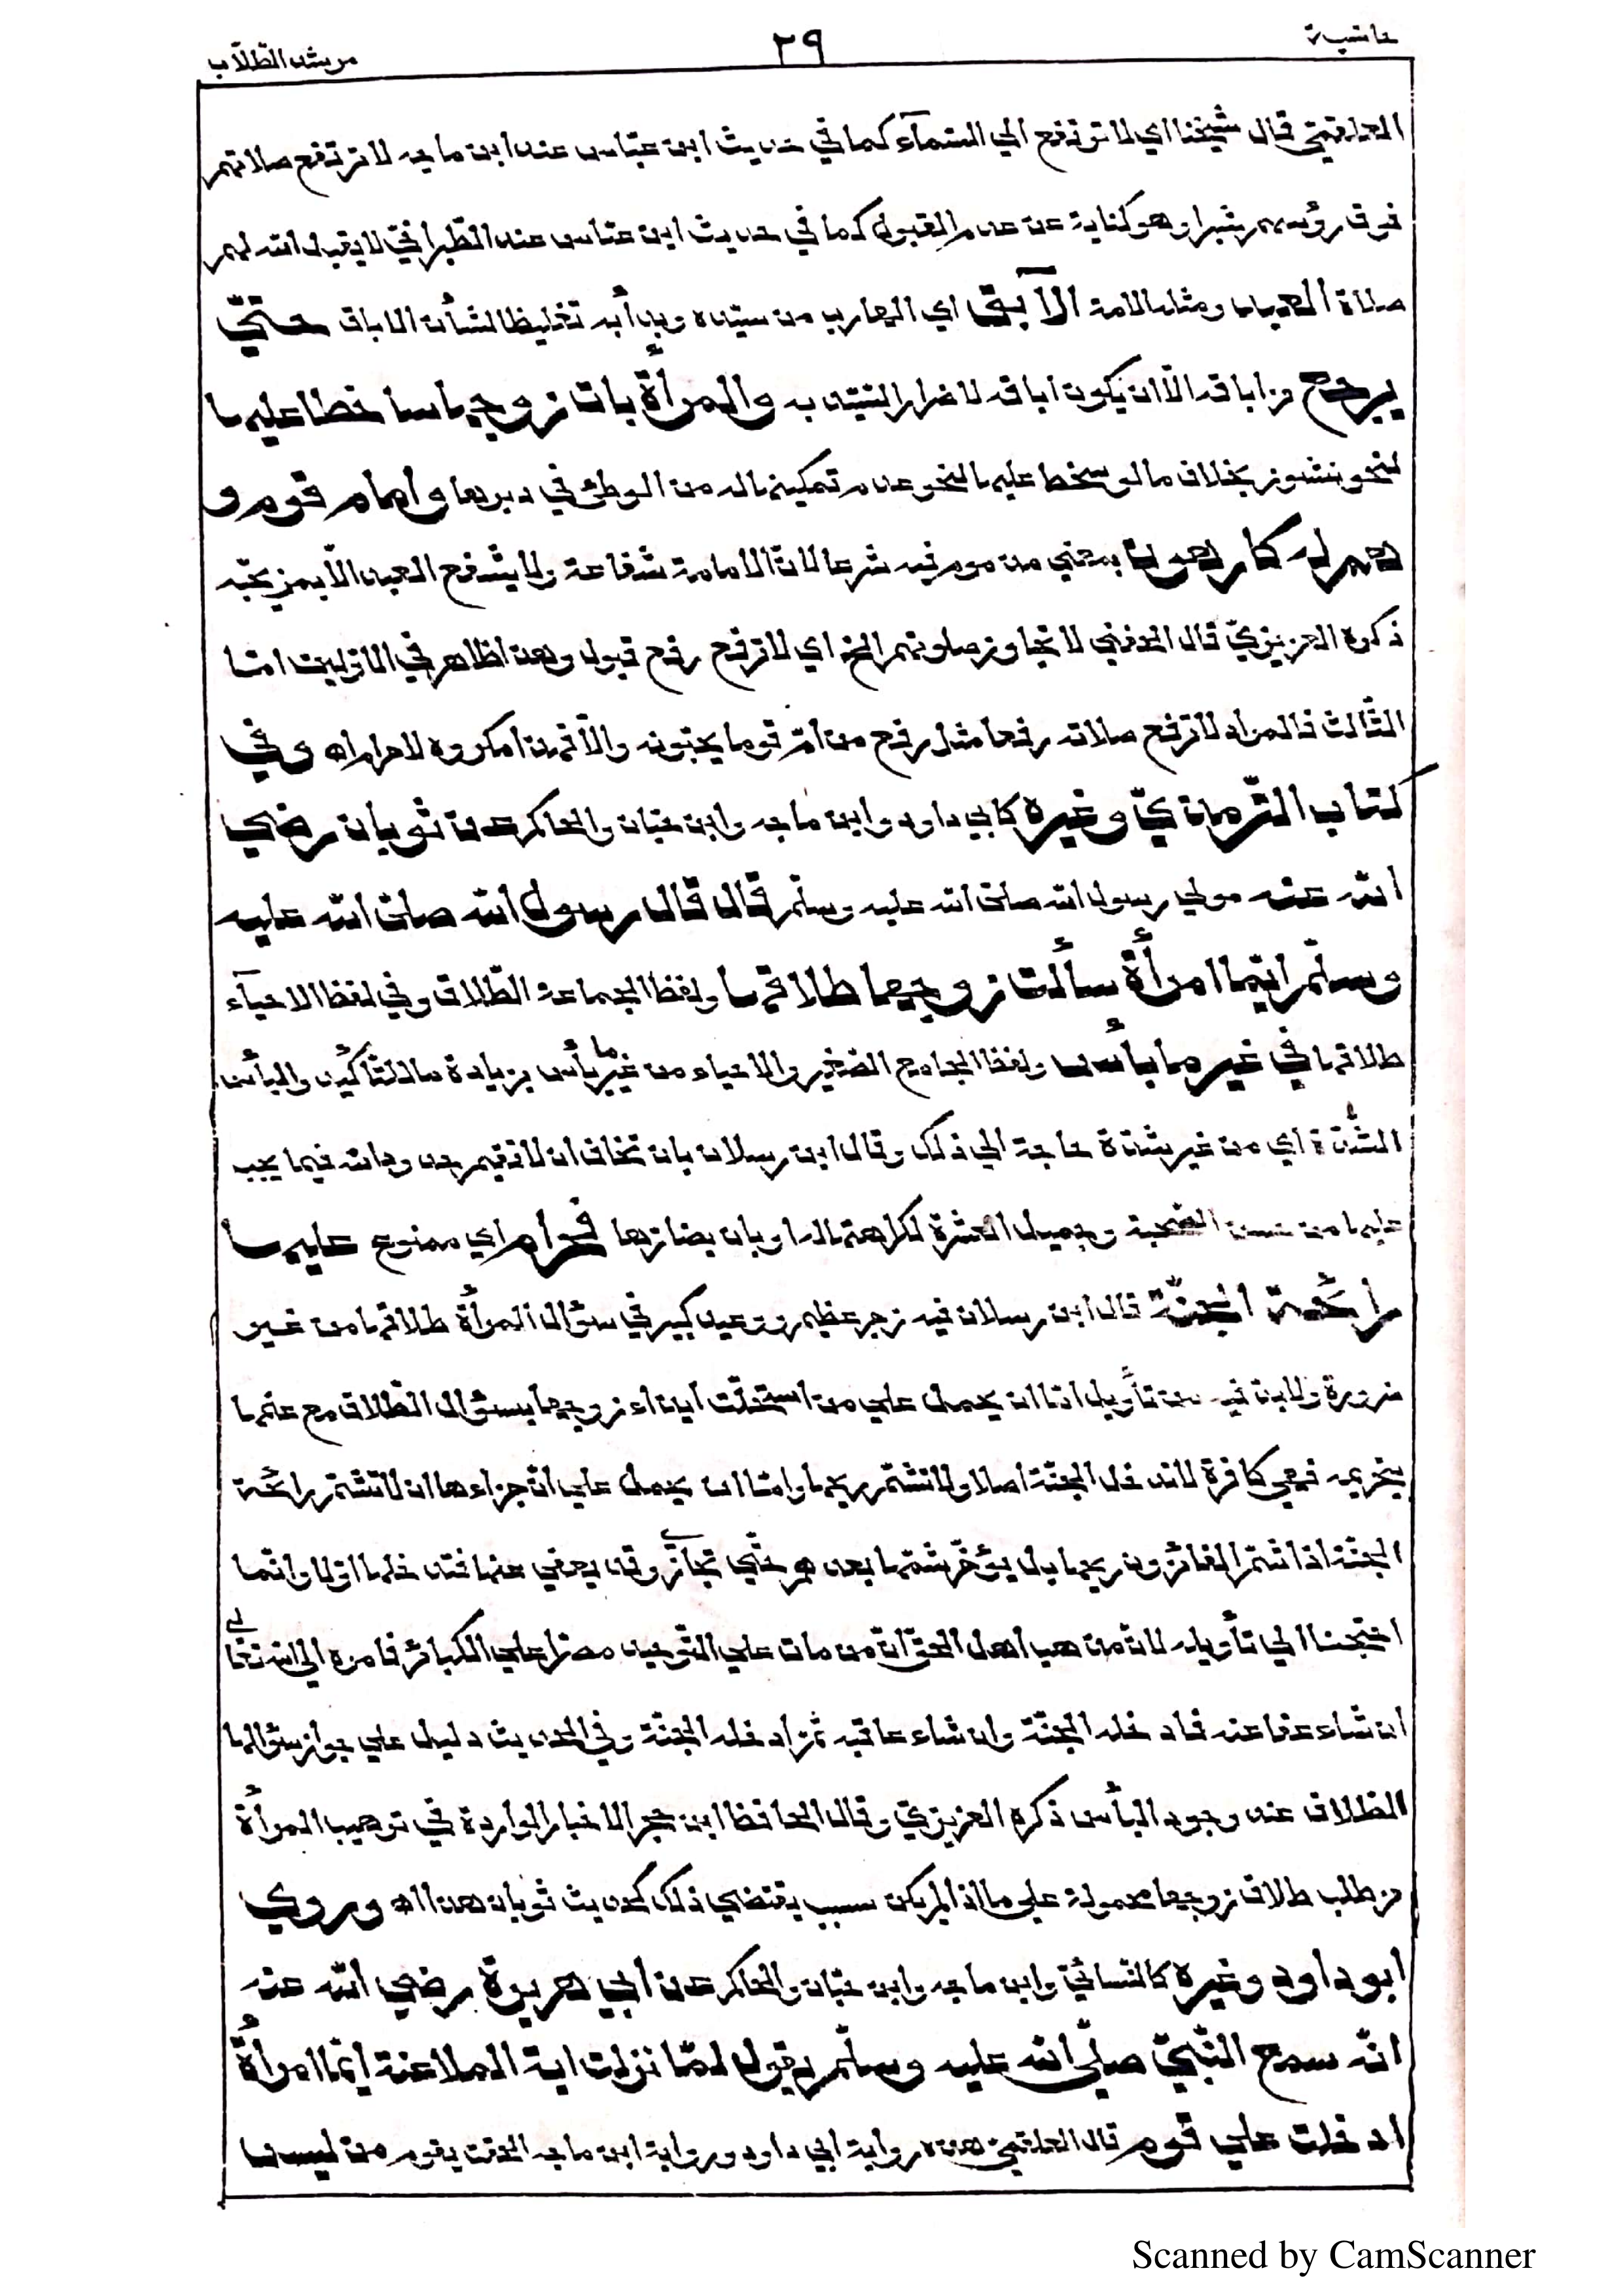 حاشية ٢٩ مرشد الطلّاب
العلقميّ قال شيخنا اي لا ترتفع الي السّمآء كما في حديث ابن عبّاس عند ابن ماجه لا ترتفع صلاتهم
فوق رؤسهم شبرا وهو كناية عن عدم القبول كما في حديث ابن عبّاس عند الطّبرانيّ لا يقبل الله لهم
صلاة العبد ومثله الامة الآبق اي الهارب من سيّده وبدأ به تغليظا لشأن الاباق حتّي
يرجع من اباقه الّا ان يكون اباقه لاضرار السّيّد به والمرأة باتت زوجها ساخطا عليها
لنحو نشوز بخلاف ما لو سخط عليها لنحو عدم تمكينها له من الوطئ في دبرها وامام قوم و
هم له كارهون بمعني مذموم فيه شرعا لانّ الامامة شفاعة ولا يشفع العبد الّا بمن يحبّه
ذكره العزيزيّ قال الحفني لا تجاوز صلوتهم الخ اي لا ترفع رفع قبول وهذا ظاهر في الاوّلين امّا
الثّالث فالمراد لا ترفع صلاته رفعا مثل رفع من امّ قوما يحبّونه والّا فهذا مكروه لا حرام اه وفي
كتاب التّرمذيّ وغيره كابي داود وابن ماجه وابن حبّان والحاكم عن ثوبان رضي
الله عنه مولي رسول الله صلى الله عليه وسلّم قال قال رسول الله صلى الله عليه
وسلّم ايّما امرأة سألت زوجها طلاقها ولفظ الجماعة الطّلاق وفي لفظ الاحيآء
طلاقها في غير ما بأس ولفظ الجامع الصّغير والاحياء من غير ما بأس بزيادة ما للتّأكيد والبأس
الشّدّة اي من غير شدّة حاجة الي ذلك وقال ابن رسلان بان تخاف ان لا تقيم حدود الله فيما يجب
عليها من حسن الصّحبة وجميل العشرة لكراهتها له او بان يضارّها فحرام اي ممنوع عليها
رائحة الجنّة قال ابن رسلان فيه زجر عظيم ووعيد كبير في سؤال المرأة طلاقها من غير
ضرورة ولا بدّ فيه من تأويل امّا ان يحمل علي من استحلّت ايذاء زوجها بسؤال الطّلاق مع علمها
بتحريمه فهي كافرة لا تدخل الجنّة اصلا ولا تشتمّ ريحها وامّا ان يحمل علي انّ جزاءها ان لا تشتمّ رائحة
الجنّة اذا شتمّ الفائزون ريحها بل يؤخّر شمّها بعدهم حتّي تجازي وقد يعفي عنها فتدخلها اوّلا وانّما
احتجنا الي تأويله لانّ مذهب اهل الحق انّ من مات علي التّوحيد مصرّا علي الكبائر فامره الي الله تعالي
ان شاء عفا عنه فادخله الجنّة وان شاء عاقبه ثمّ ادخله الجنّة وفي الحديث دليل علي جواز سؤالها
الطّلاق عند وجود البأس ذكره العزيزيّ وقال الحافظ ابن حجر الاخبار الواردة في ترهيب المرأة
من طلب طلاق زوجها محمولة علي ما اذا لم يكن سبب يقتضي ذلك كحديث ثوبان هذا اه وروي
ابو داود وغيره كالنّسائيّ وابن ماجه وابن حبّان والحاكم عن ابي هريرة رضي الله عنه
انّه سمع النّبيّ صلّى الله عليه وسلّم يقول لمّا نزلت اية الملاعنة ايّما امرأة
ادخلت علي قوم قال العلقميّ هذه رواية ابي داود ورواية ابن ماجه الحقت بقوم من ليس
Scanned by CamScanner